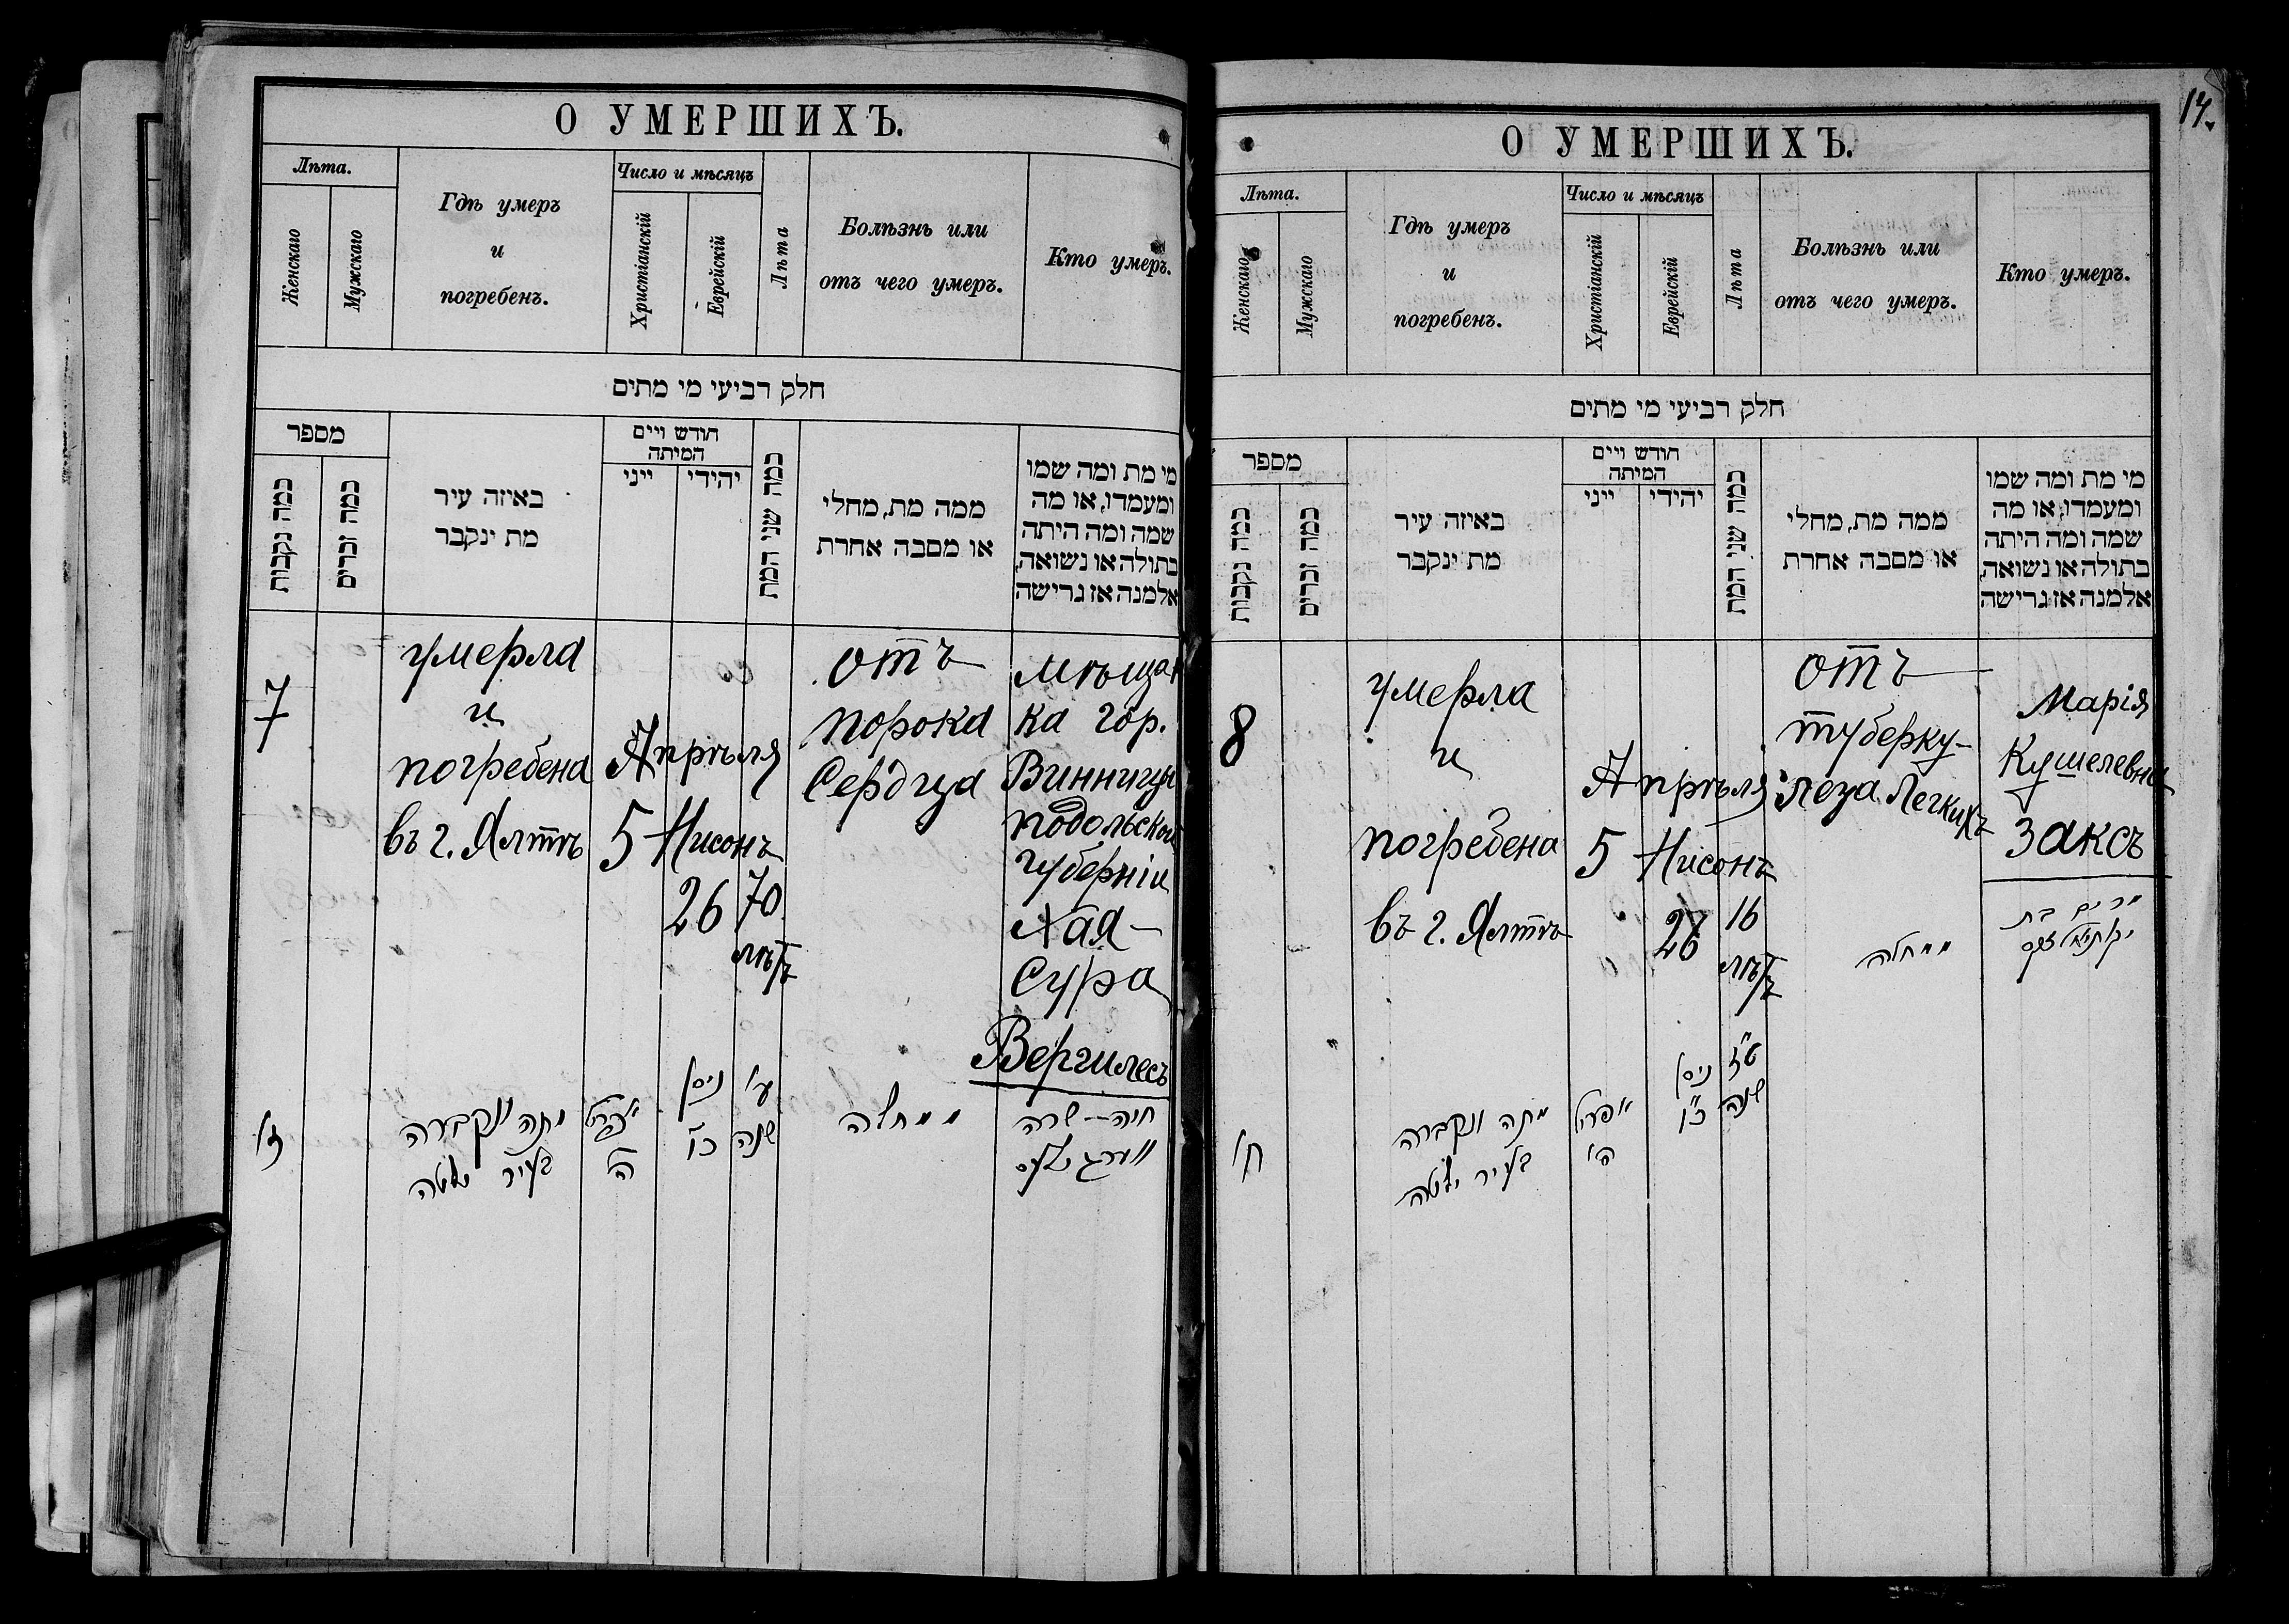 О УМЕРШИХЪ.
Лѣта.
Женскаго
Мужскаго
Гдѣ умеръ
и
погребенъ.
Число и мѣсяцъ
Христіанскій
Еврейскій
Лѣта
Болѣзнь или
отъ чего умеръ.
Кто умеръ.
חלק רביעי מי מתים
מספר
כמה נקבות
כמה זכרים
באיזה עיר
מת ינקבר
חודש ויים
המיתה
ייני
יהידי
כמה שני המת
ממה מת, מחלי
או מסבה אחרת
מי מת ומה שמו
ומעמדו, או מה
שמה ומה היתה
בתולה או נשואה,
אלמנה אז גרישה
7
умерла
и
погребена
въ г. Ялтѣ
Апрѣля
5
Нисонъ
26
70
лѣтъ
отъ
порока
Сердца
Мѣщан
ка гор.
Винницы
Подольской
губерніи
Хая-
Сура
Вергилесъ
ז'
מתה ונקברה
בעיר יאלטה
אפריל
ה'
ניסן
כ"ו
ע'
שנה
ממחלה
חיה - שרה
ווערגילעס
14.
О УМЕРШИХЪ.
Лѣта.
Женскаго
Мужскаго
Гдѣ умеръ
и
погребенъ.
Число и мѣсяцъ
Христіанскій
Еврейскій
Лѣта
Болѣзнь или
отъ чего умеръ.
Кто умеръ.
חלק רביעי מי מתים
מספר
כמה נקבות
כמה זכרים
באיזה עיר
מת ינקבר
חודש ויים
המיתה
ייני
יהידי
כמה שני המת
ממה מת, מחלי
או מסבה אחרת
מי מת ומה שמו
ומעמדו, או מה
שמה ומה היתה
בתולה או נשואה,
אלמנה אז גרישה
8
умерла
и
погребена
въ г. Ялтѣ
Апрѣля
5
Нисонъ
26
16
лѣтъ
отъ
туберку-
леза Легкихъ
Марія
Кушелевна
Заксъ
ח'
מתה ונקברה
בעיר יאלטה
אפריל
ה'
ניסן
כ"ו
ט"ז
שנה
ממחלה
מרים בת
יקותיאל זקס